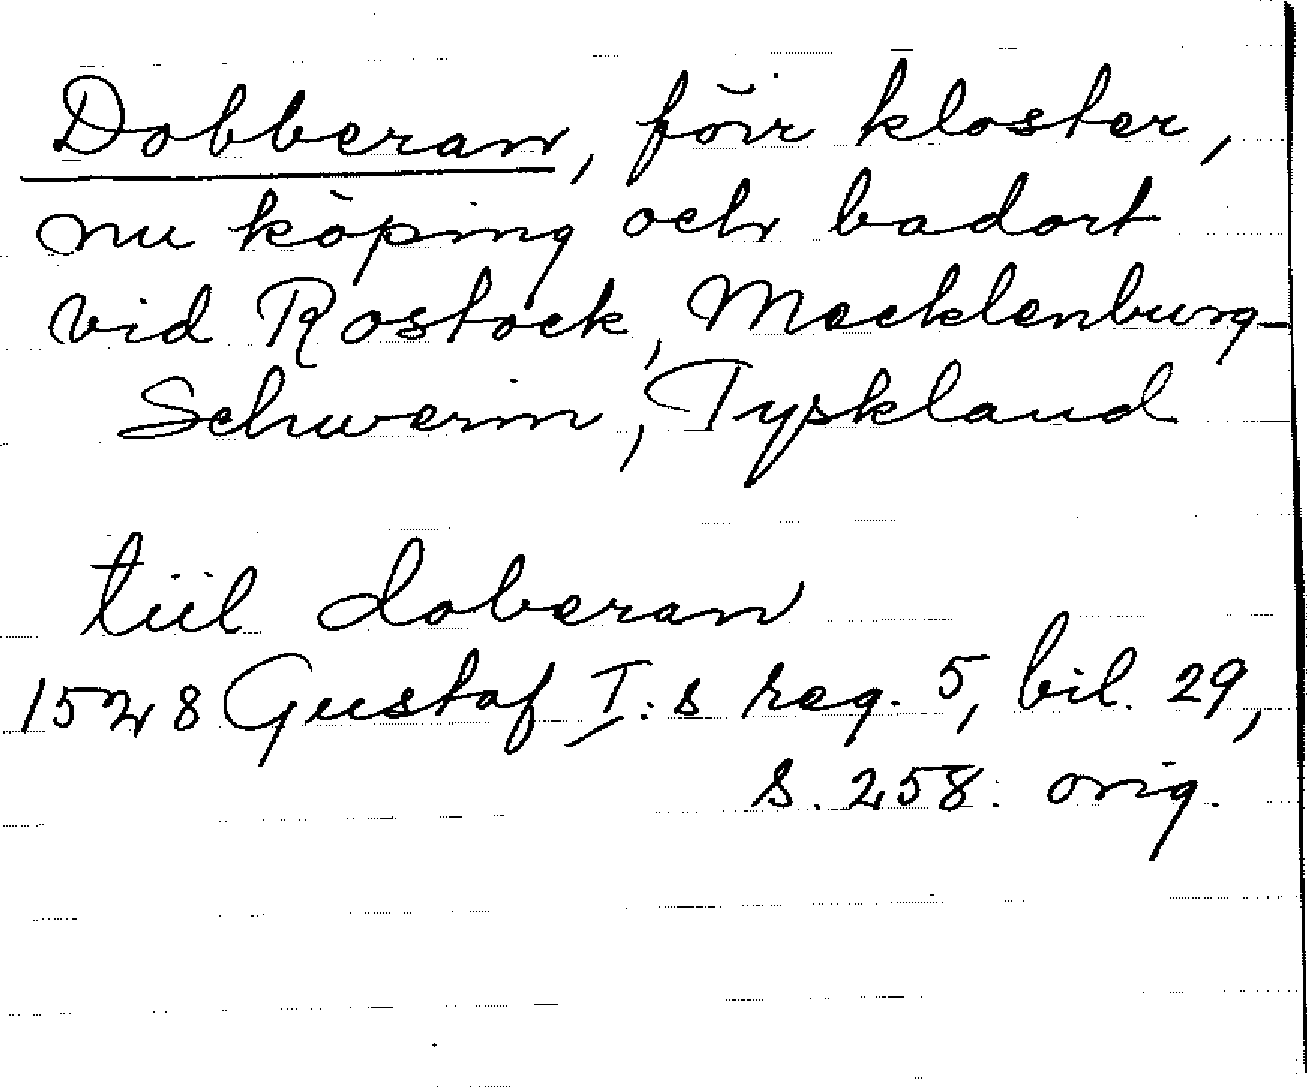 Dobberan, förr kloster,
nu köping och badort
vid Rostock, Mecklenburg-
Schwerin, Tyskland
tiil doberan
1528 Gustaf I:s reg. 5, bil. 29,
s. 258. orig.